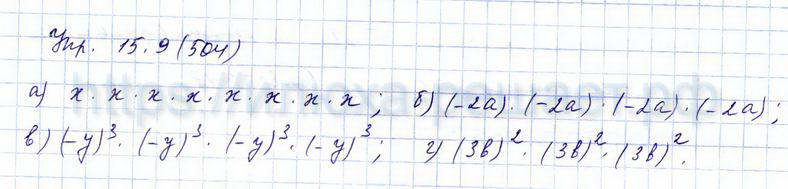 Упр. 15.9 (504)
а) x · x · x · x · x · x · x · x ; б) (-2a) · (-2a) · (-2a) · (-2a) ;
в) (-y)³ · (-y)³ · (-y)³ · (-y)³ ; г) (3b)² · (3b)² · (3b)² .